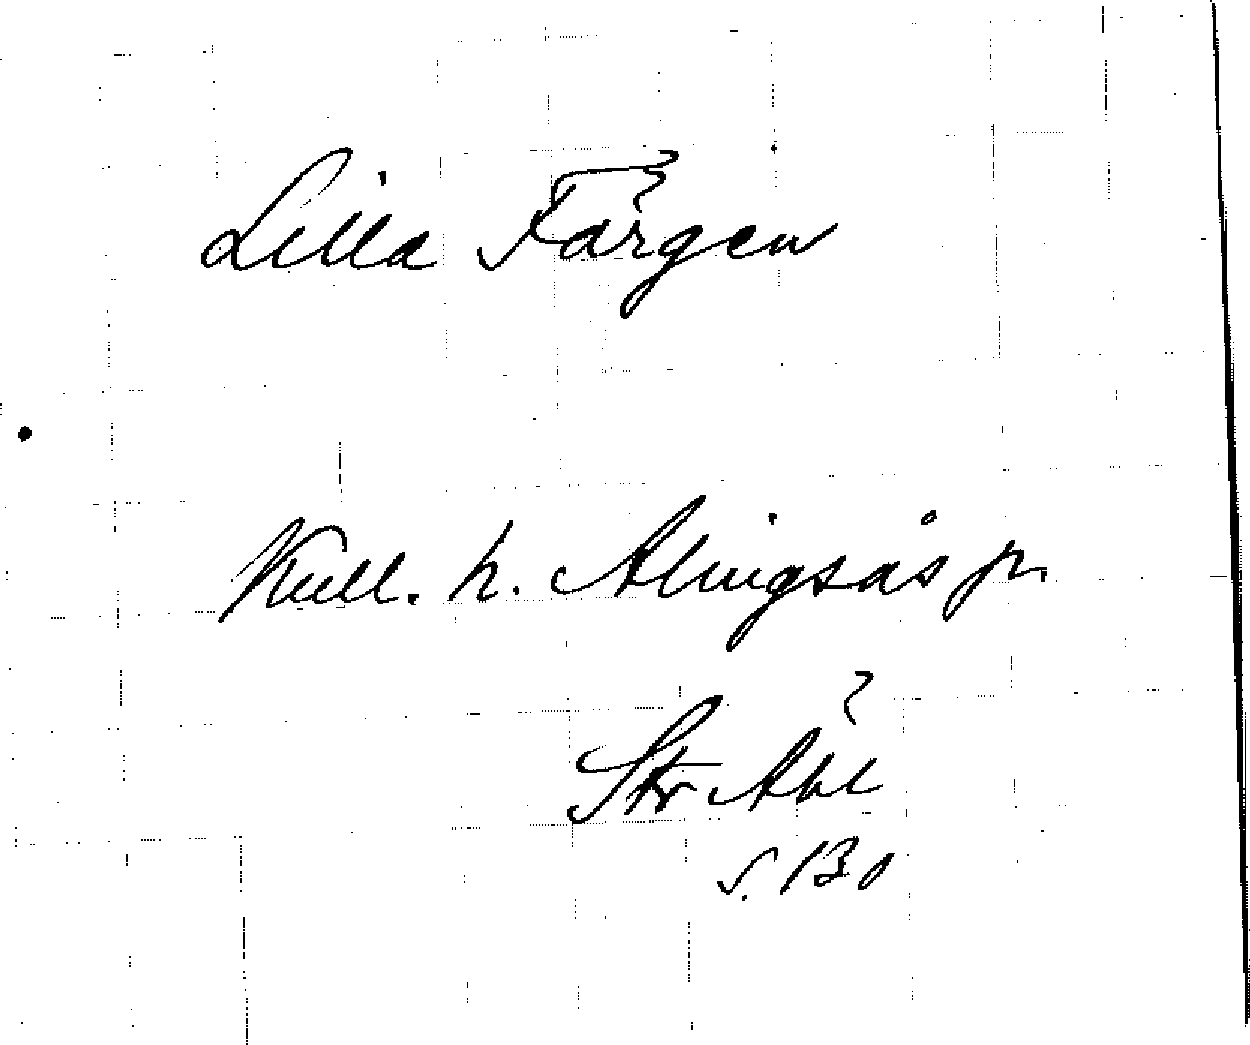 Lilla Färgen
Kull. h. Alingsås sn
Str Ähl
s. 130